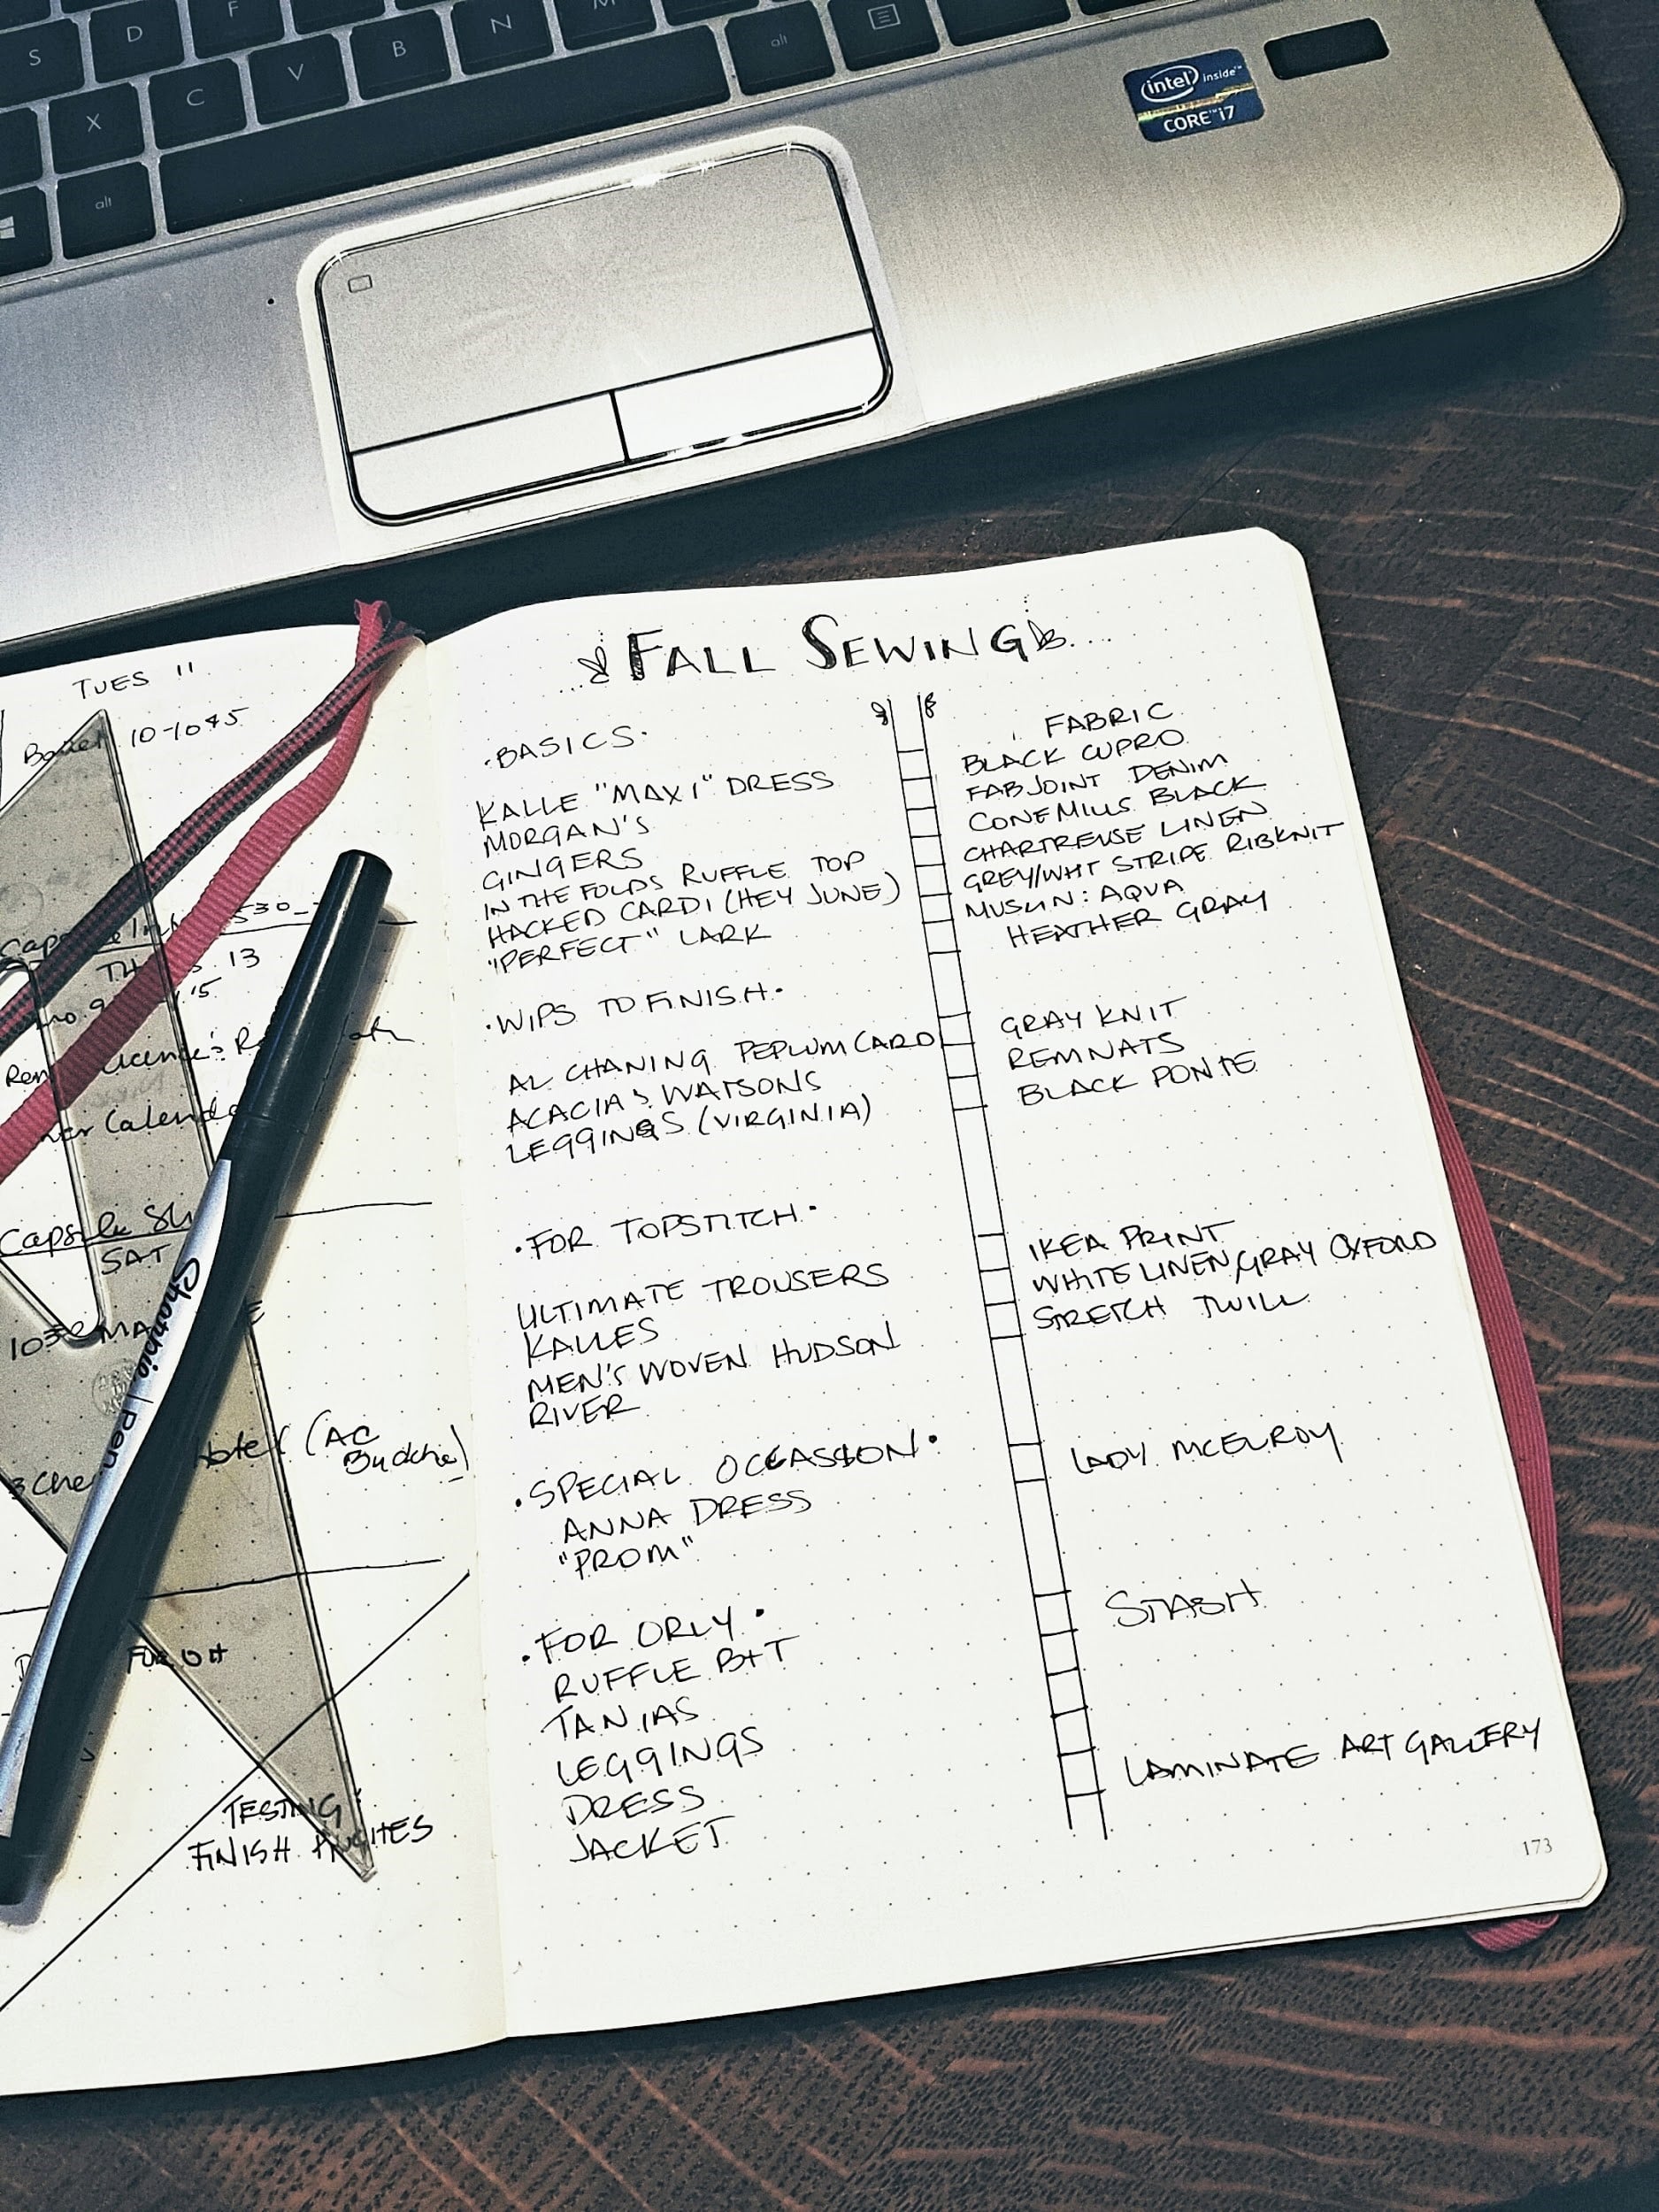 S
D
F
X
C
V
B
N
M
alt
alt
intel inside™
CORE™ i7
TUES 11
10-1045
13
Calenda
Capsule
SAT
Sharpie / Pen
(AC
Buddha)
FOR OH
TESTING:
FINISH
FALL SEWING
·BASICS·
KALLE "MAXI" DRESS
MORGAN'S
GINGERS
IN THE FOLDS RUFFLE TOP
HACKED CARDI (HEY JUNE)
"PERFECT" LARK
·WIPS TO FINISH·
AL CHANING PEPLUM CARD
ACACIA & WATSONS
LEGGINGS (VIRGINIA)
·FOR TOPSTITCH·
ULTIMATE TROUSERS
KALLES
MEN'S WOVEN HUDSON
RIVER
·SPECIAL OCCASSION·
ANNA DRESS
"PROM"
·FOR ORLY·
RUFFLE B+T
TANIAS
LEGGINGS
DRESS
JACKET
FABRIC
BLACK CUPRO
FABJOINT DENIM
CONE MILLS BLACK
CHARTREUSE LINEN
GREY/WHT STRIPE RIBKNIT
MUSLIN: AQUA
HEATHER GRAY
GRAY KNIT
REMNATS
BLACK PONTE
IKEA PRINT
WHITE LINEN, GRAY OXFORD
STRETCH TWILL
LADY MCELROY
STASH
LAMINATE ART GALLERY
173